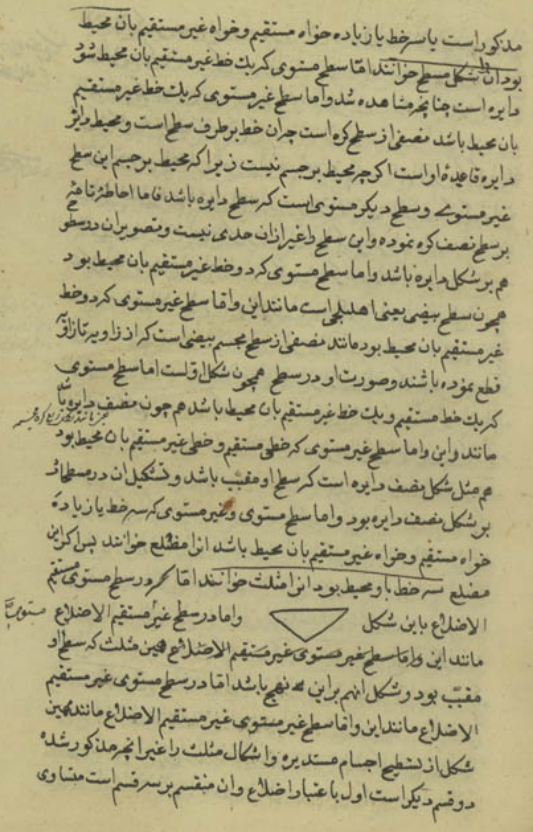 مذکور است یا سه خط یا زیاده خواه مستقیم و خواه غیر مستقیم بان محیط
بود آن شکل مسطح خوانند اما سطح مستوی که یک خط غیر مستقیم بان محیط شود
دایره است چنانچه مشاهده شد و اما سطح غیر مستوی که یک خط غیر مستقیم
بان محیط باشد منصفی از سطح کره است چه ان خط بر طرف سطح است و محیط دایره
دایره قاعدهٔ او است اکر چه محیط بر جسم نیست زیرا که محیط بر جسم این سطح
غیر مستوی و سطح دیکر مستوی است که سطح دایره باشد فاما احاطهٔ
بر سطح نصف کره نموده و این سطح را غیر ازان حدی نیست و تصویر ان در سطح
هم بر شکل دایره باشد و اما سطح مستوی که دو خط غیر مستقیم بان محیط بود
همچون سطح بیضی یعنی اهلیلجی است مانند این و اما سطح غیر مستوی که دو خط
غیر مستقیم بان محیط بود مانند منصفی از سطح مجسم بیضی است که از زاویه تا زاویه
قطع نموده باشند و صورت او در سطح همچون شکل اول است اما سطح مستوی
که یک خط مستقیم و یک خط غیر مستقیم بان محیط باشد هم چون منصف دایره
مانند و این و اما سطح غیر مستوی که خطی مستقیم و خطی غیر مستقیم بان محیط بود
هم مثل شکل نصف دایره است که سطح او مقبب باشد و تشکیل ان در مسطحات
بر شکل نصف دایره بود و اما سطح مستوی و غیر مستوی که سه خط یا زیاده
خواه مستقیم و خواه غیر مستقیم بان محیط باشد انرا مضلع خوانند پس اکر این
مضلع سه خط باو محیط بود انرا مثلث خوانند اما در سطح مستوی مستقیم
الاضلاع باین شکل و اما در سطح غیر مستقیم الاضلاع مستوی
مانند این و اما سطح غیر مستوی غیر مستقیم الاضلاع همین مثلث که سطح او
مقبب بود و شکل انهم بر این نهج باشد اما در سطح مستوی غیر مستقیم
الاضلاع مانند این و اما سطح غیر مستوی غیر مستقیم الاضلاع مانند همین
شکل از تسطیح اجسام مستدیره و اشکال مثلث را غیر انچه مذکور شد
دو قسم دیکر است اول باعتبار اضلاع و ان منقسم بر سه قسم است متساوی